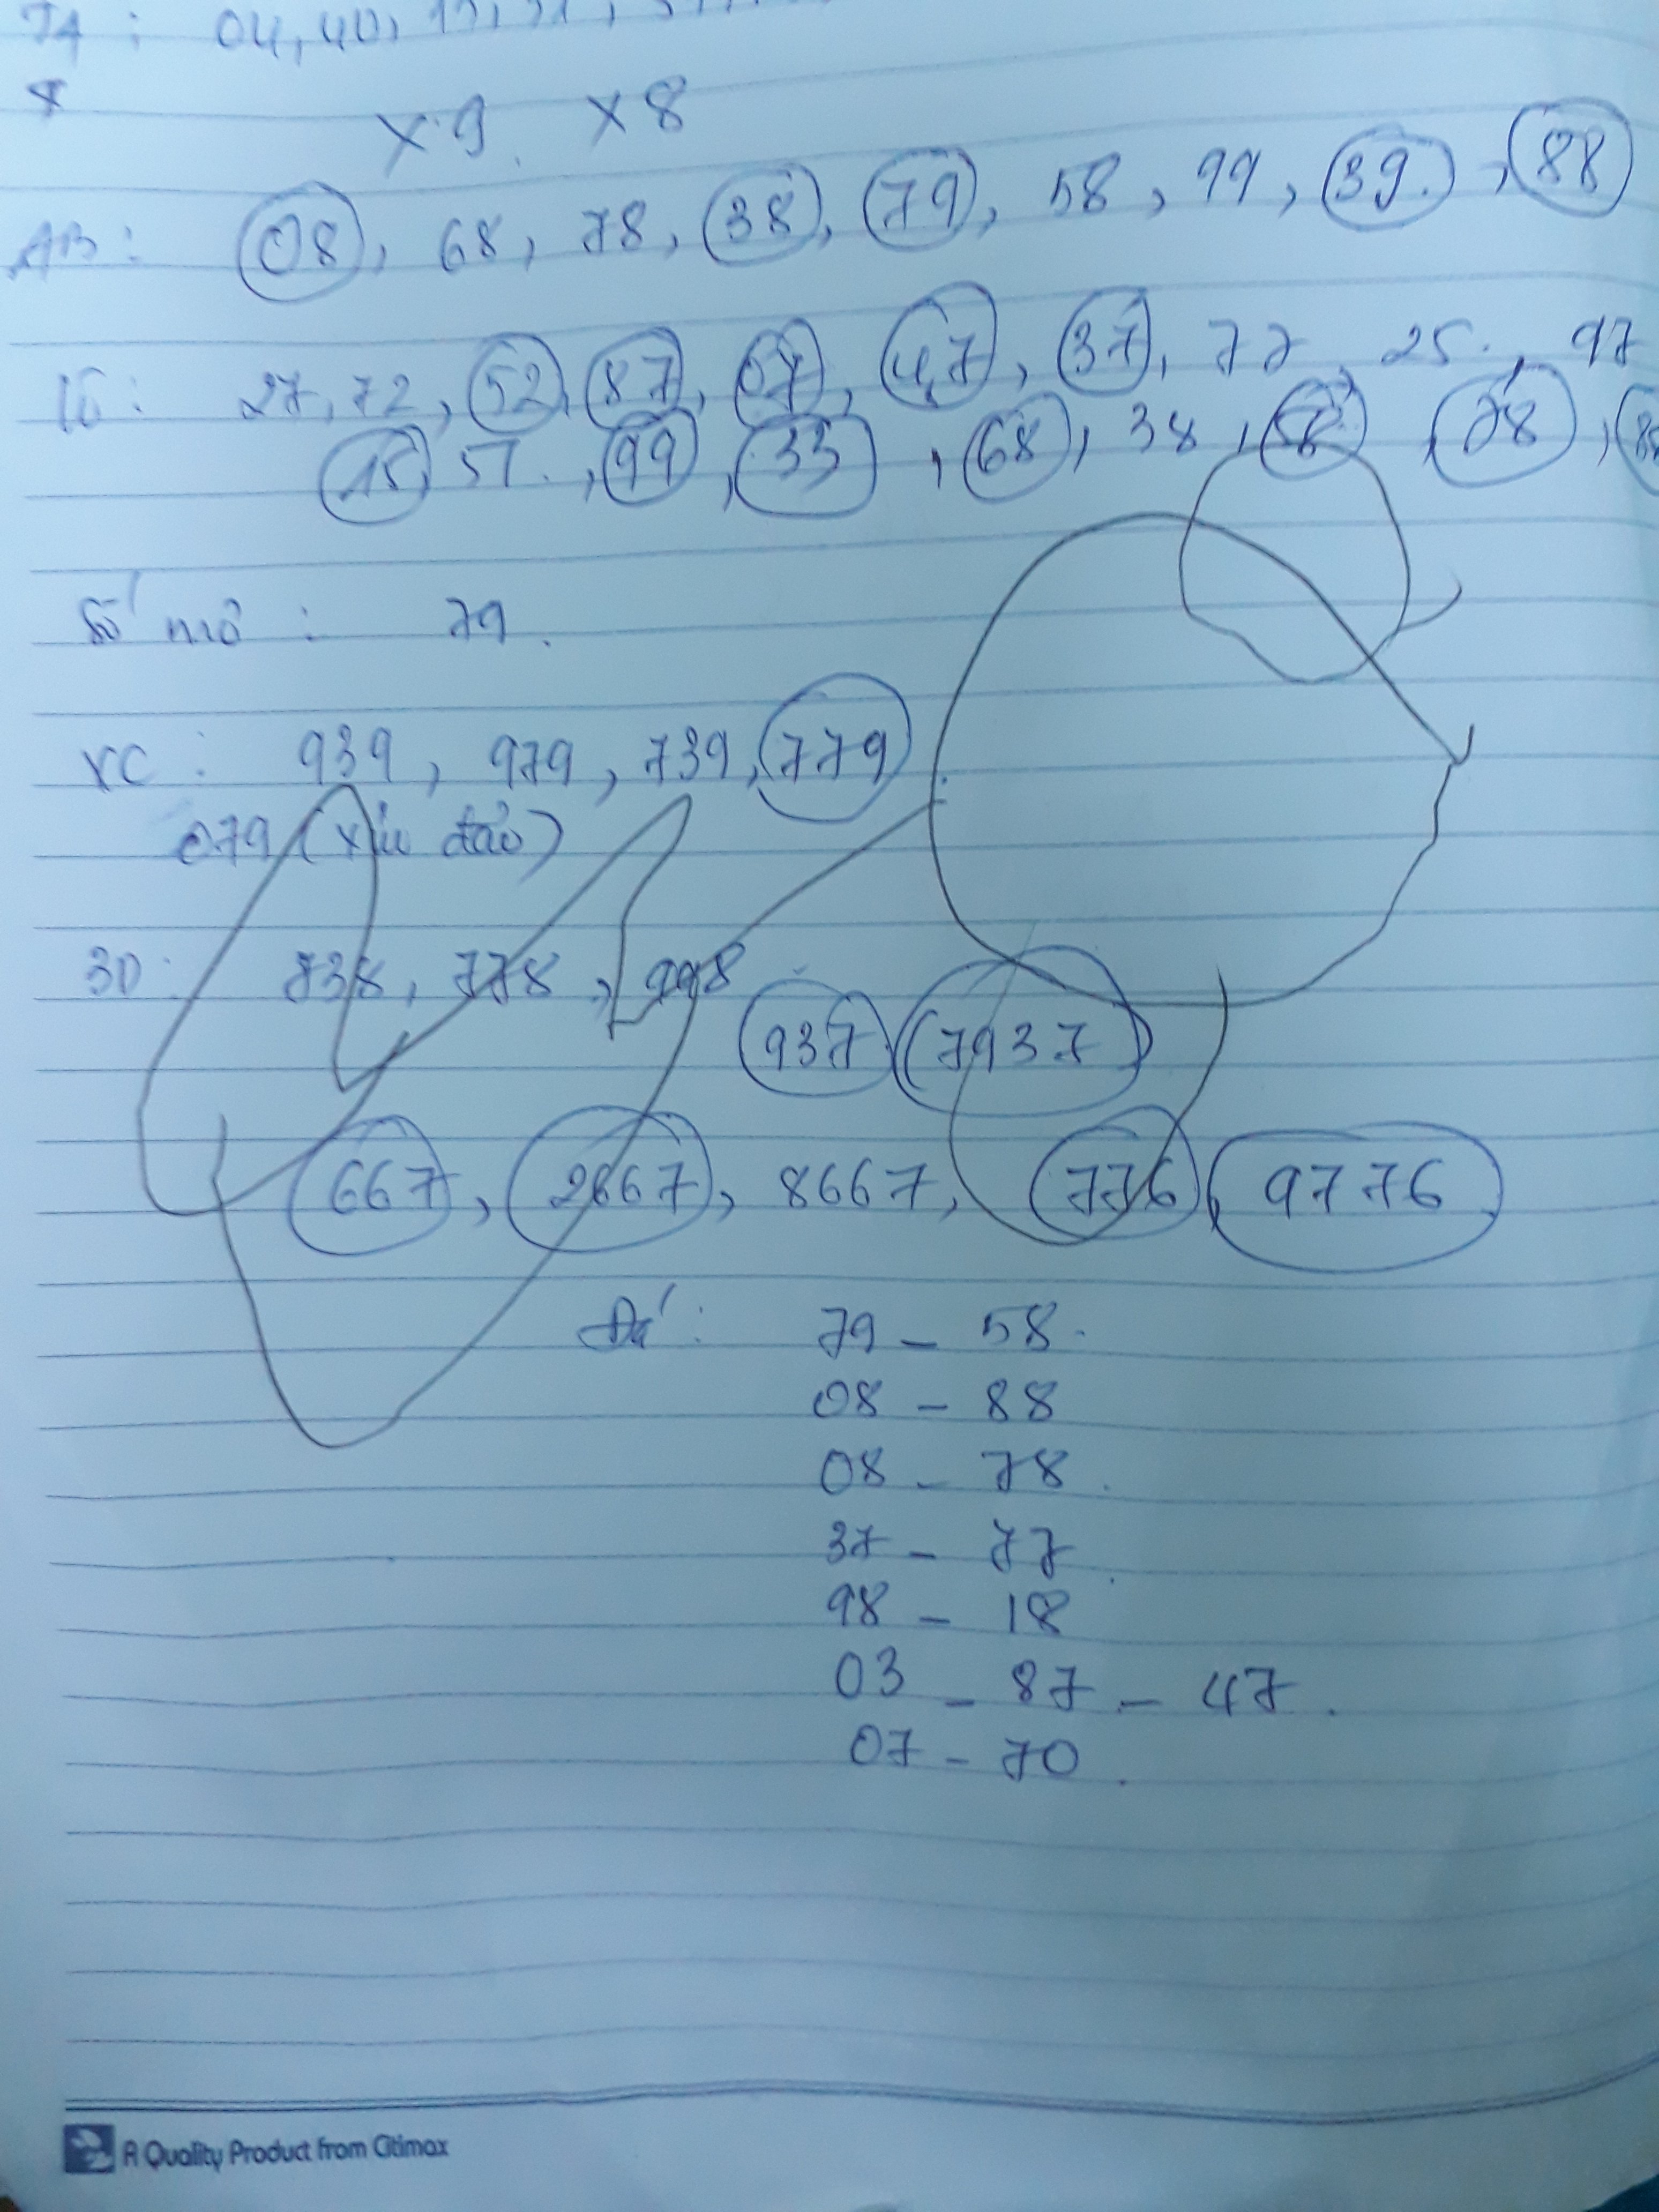 74 : 04, 40,
x9. x8
AB : 08, 68, 78, 38, 79, 58, 99, 39, 88
lô : 27, 72, 52, 87, 07, 47, 37, 77, 25, 97
57, 99, 33, 68, 38, 58, 78,
Số mơ : 79.
XC : 939, 979, 739, 779
079 (xỉu đảo)
3D : 738, 778, 998
937 (7937)
667, 2667, 8667, 776, 9776
Đá : 79 - 58.
08 - 88
08 - 78.
37 - 77.
98 - 18
03 - 87 - 47.
07 - 70.
A Quality Product from Citimax